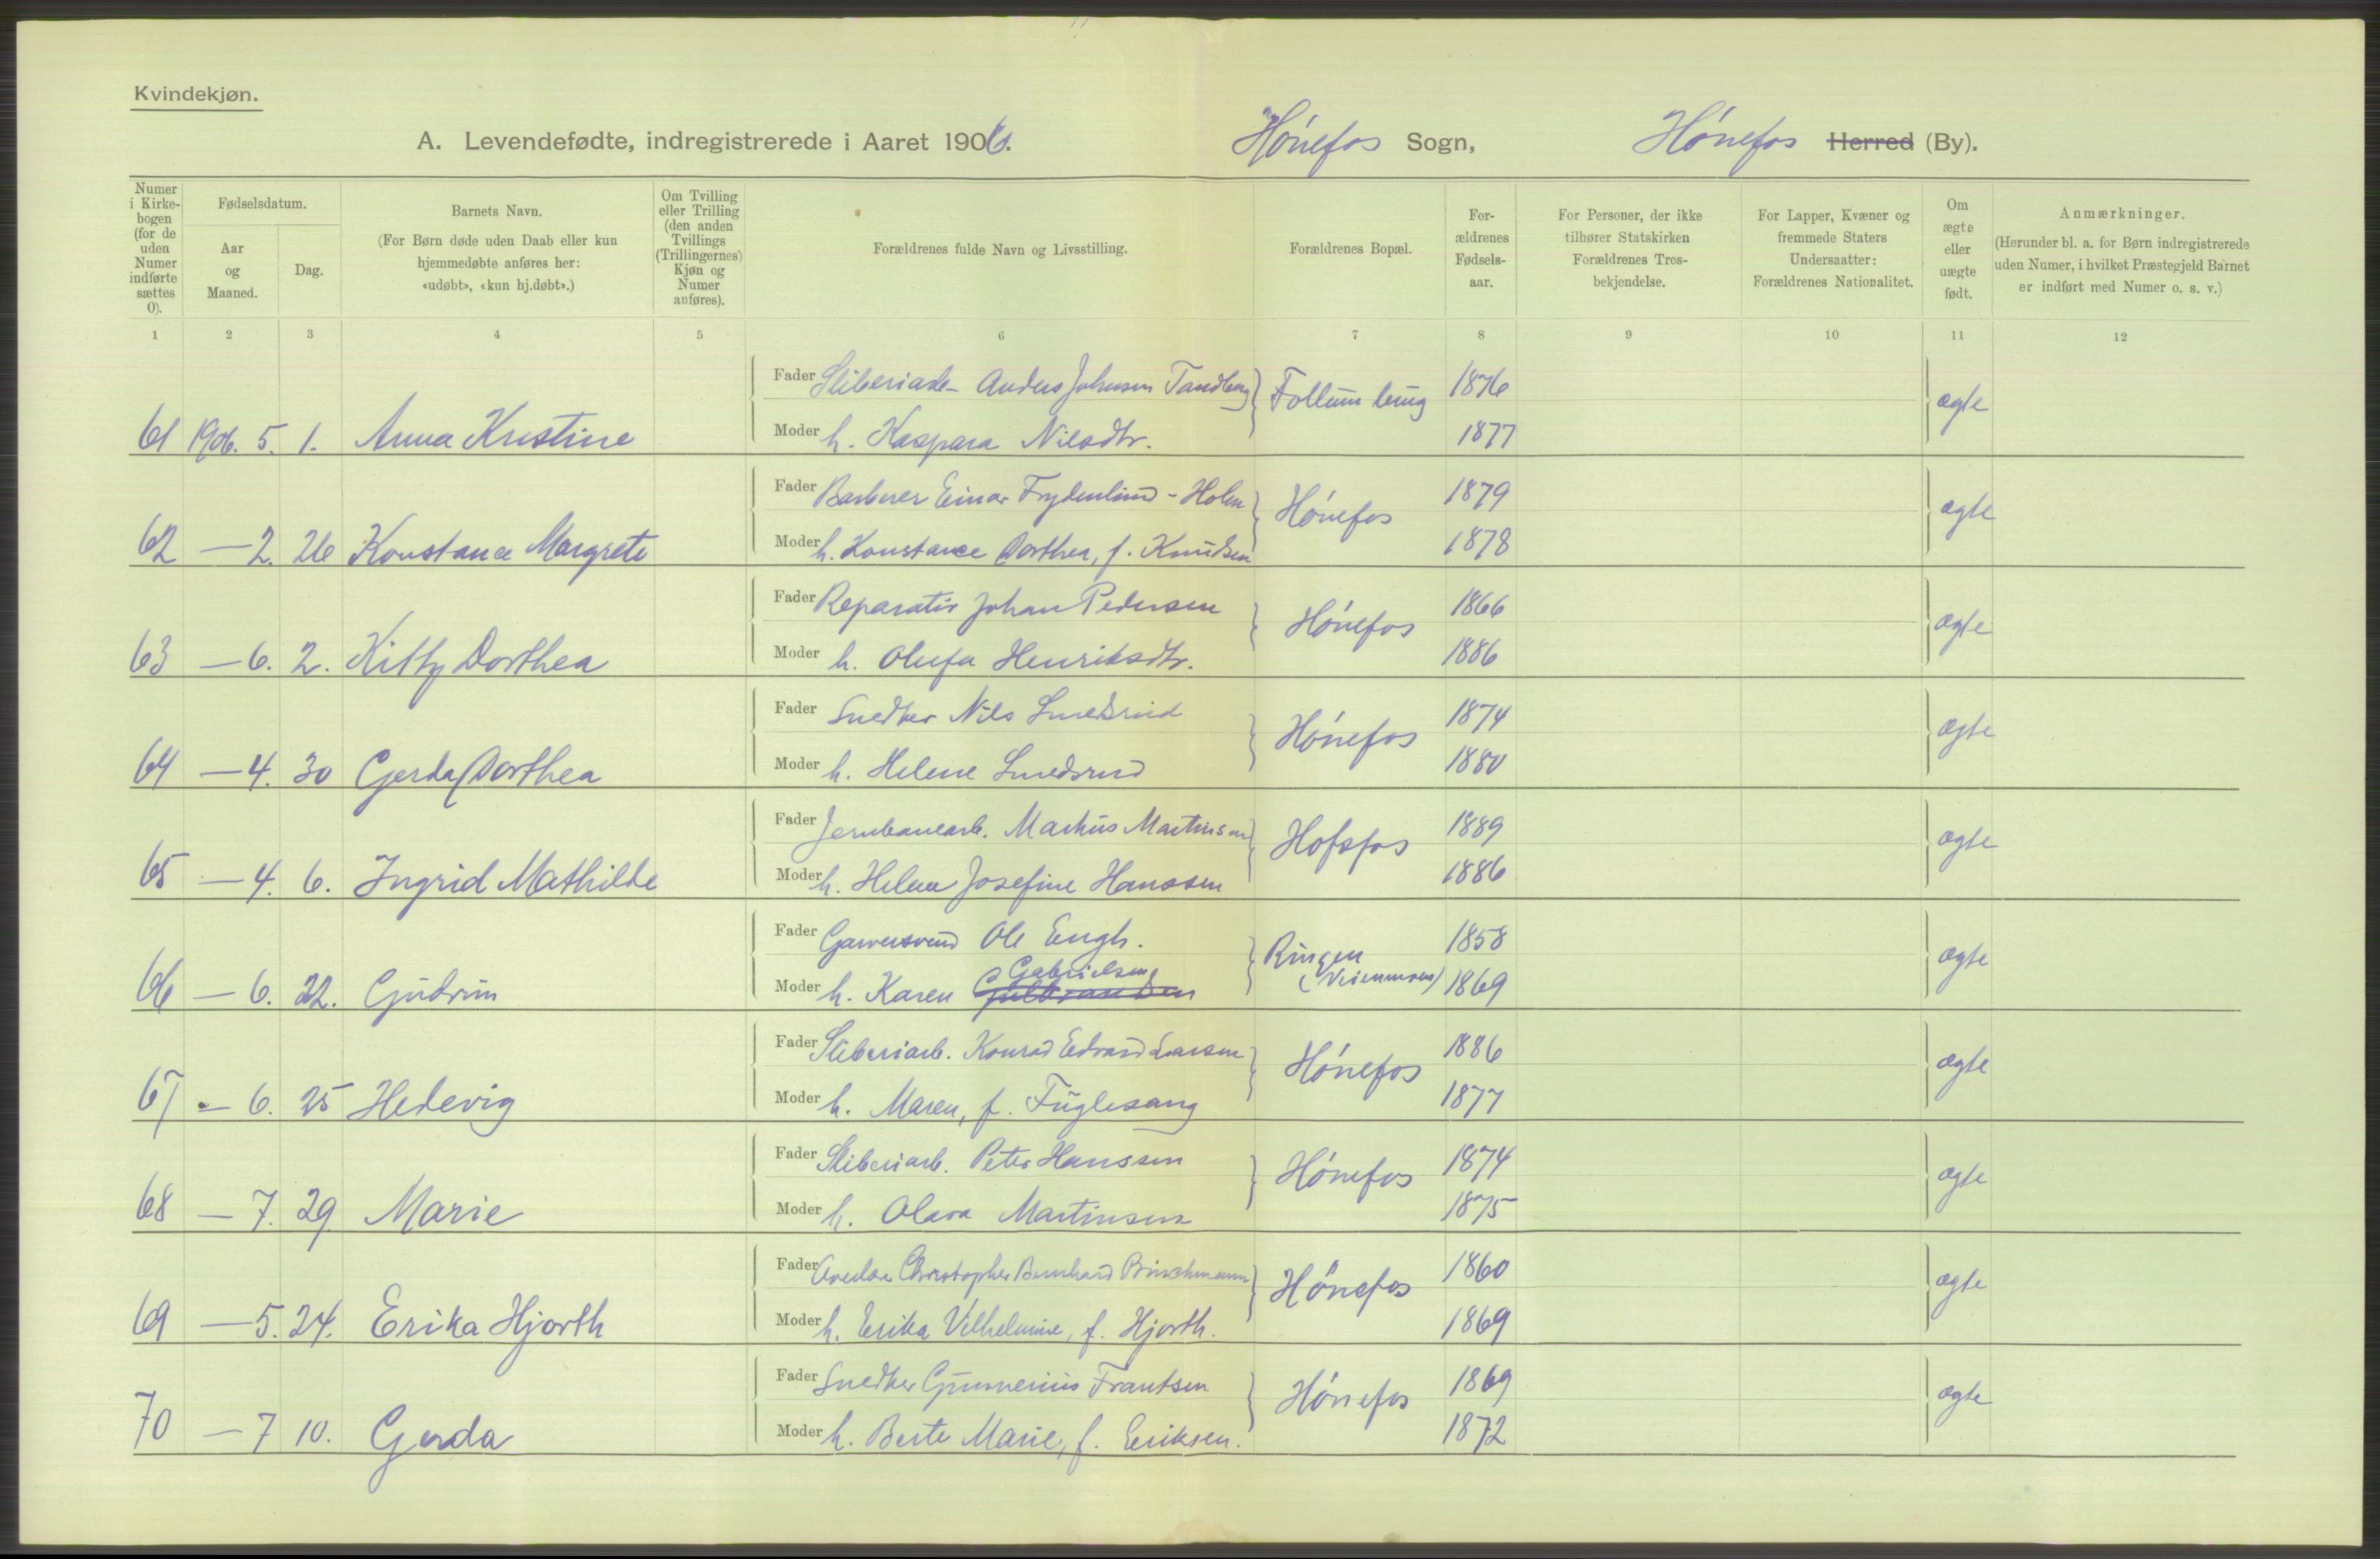 Kvindekjøn.
A. Levendefødte, indregistrerede i Aaret 1906. Hónefos Sogn, Hónefos Herred (By).
Numer i Kirkebogen (for de uden Numer indførte sættes 0).
Fødselsdatum.
Aar og Maaned.
Dag.
Barnets Navn.
(For Børn døde uden Daab eller kun hjemmedøbte anføres her: «udøbt», «kun hj.døbt».)
Om Tvilling eller Trilling (den anden Tvillings (Trillingernes) Kjøn og Numer anføres).
Forældrenes fulde Navn og Livsstilling.
Forældrenes Bopæl.
Forældrenes Fødselsaar.
For Personer, der ikke tilhører Statskirken Forældrenes Trosbekjendelse.
For Lapper, Kvæner og fremmede Staters Undersaatter: Forældrenes Nationalitet.
Om ægte eller uægte født.
Anmærkninger.
(Herunder bl. a. for Børn indregistrerede uden Numer, i hvilket Præstegjeld Barnet er indført med Numer o. s. v.)
1 2 3 4 5 6 7 8 9 10 11 12
Fader Sliberiarb- Anders Johnsen Tandberg Follum 1876 ægte
61 1906. 5. 1. Anna Kristine Moder h. Kaspara Nilsdtr. 1877
Fader Barberer Einar Frydenlund - Holm Hónefos 1879 ægte
62 — 2. 26 Konstance Margrete Moder h. Konstance Dorthea, f. Knudsen 1878
Fader Reparatør Johan Pedersen Hónefos 1866 ægte
63 — 6. 2. Kitty Dorthea Moder h. Olufa Henriksdtr. 1886
Fader Snedker Nils Smedsrud Hónefos 1874 ægte
64 — 4. 30 Gerda Dorthea Moder h. Helene Smedsrud 1880
Fader Jernbanearb. Markus Martinsen Hofsfos 1889 ægte
65 — 4. 6. Ingrid Mathilde Moder h. Helene Josefine Hanssen 1886
Fader Garversvend Ole Engh. Ringen 1858 ægte
66 — 6. 22. Gudrun Moder h. Karen Gulbrandsen Gabrielsen (Veienmoen) 1869
Fader Sliberiarb. Konrad Edvard Larsen Hónefos 1886 ægte
67 — 6. 25 Hedevig Moder h. Maren, f. Fuglesang 1877
Fader Sliberiarb. Peter Hanssen Hónefos 1874 ægte
68 — 7. 29. Marie Moder h. Olava Martinsen 1875
Fader Christopher Bernhard Brinchmann Hónefos 1860 ægte
69 — 5. 24. Erika Hjorth Moder h. Erika Vilhelmine, f. Hjorth. 1869
Fader Snedker Gunnerius Frantsen Hónefos 1869 ægte
70 — 7 10. Gerda Moder h. Berte Marie, f. Eriksen. 1872